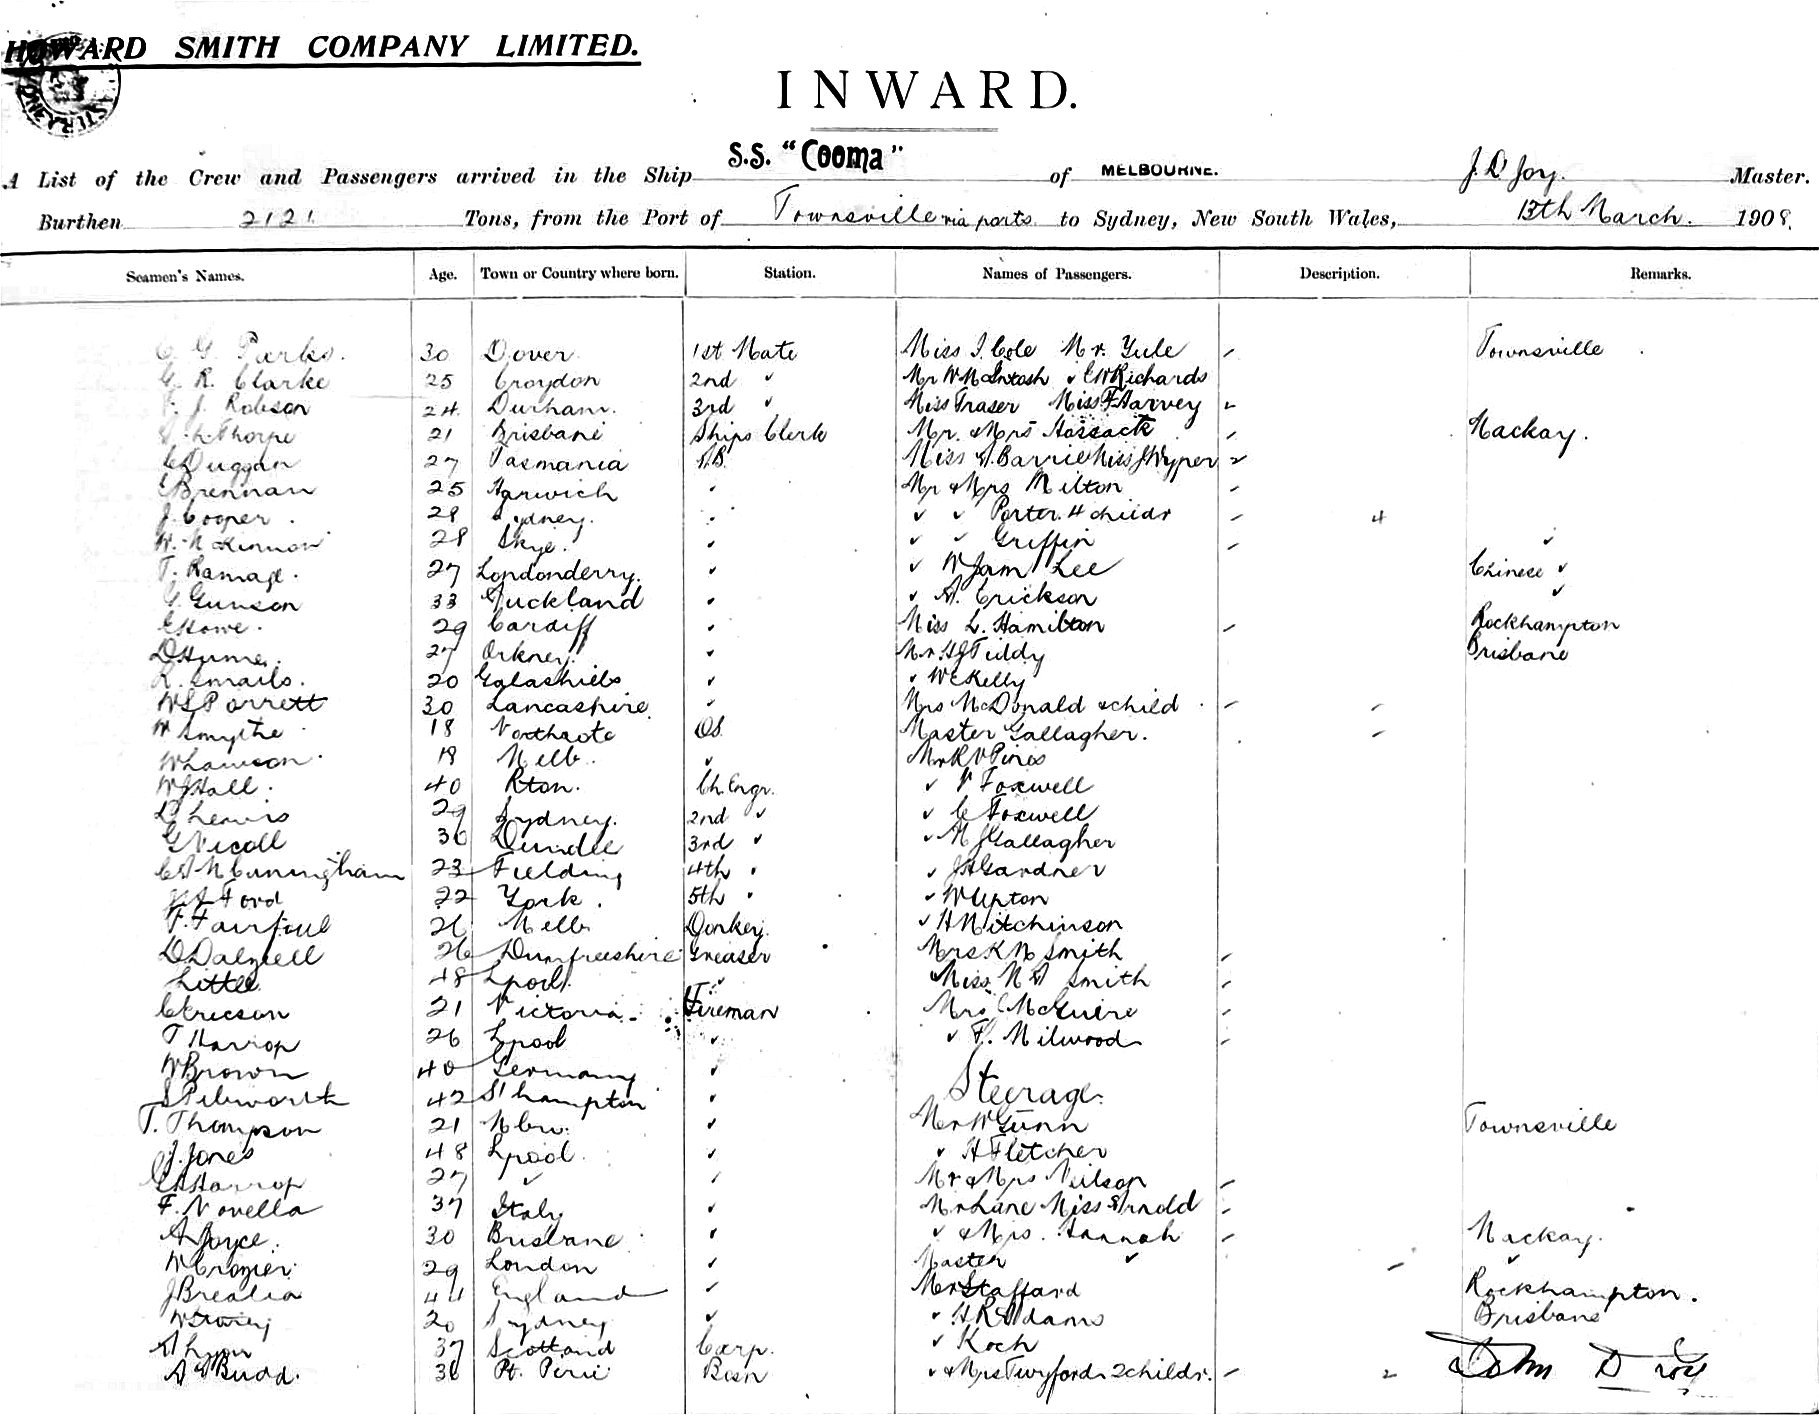 HOWARD SMITH COMPANY LIMITED.
INWARD.
A List of the Crew and Passengers arrived in the Ship S.S. "Cooma" of MELBOURNE. J. D. Joy. Master.
Burthen 2121 Tons, from the Port of Townsville via ports to Sydney, New South Wales, 13th March. 1908.
Seamen's Names. Age. Town or Country where born. Station. Names of Passengers. Description. Remarks.
C. G. Parks. 30 Dover. 1st Mate Miss I. Cole Mr. Yule Townsville
G. R. Clarke 25 Croydon 2nd " Mr W McIntosh " C W Richards
J. Robson 24. Durham. 3rd " Miss Fraser Miss F Harvey
Thorpe 21 Brisbane Ships Clerk Mr. & Mrs Hossack Mackay.
C Duggan 27 Tasmania A.B. Miss A. Barrie Miss J Wyper
E Brennan 25 Harwich " Mr & Mrs Milton
J. Cooper. 28 Sydney. " " " Porter. 4 childr 4
W. McKinnon 28 Skye. " " " Griffin "
T. Ramage. 27 Londonderry. " " W Jam Lee Chinese "
G. Gunson 33 Auckland " " A. Erickson "
E Howe. 29 Cardiff " Miss L. Hamilton Rockhampton
D Hume. 27 Orkney. " Mr H J Tiddy Brisbane
R. Smails. 20 Galashiels " " W C Kelly
W S Parrett 30 Lancashire. " Mrs McDonald & child
W Smythe 18 Northcote O.S. Master Gallagher.
W Lawson. 18 Melb. " Mr R V Pires
W J Hall. 40 Rton. Ch. Engr. " V Foxwell
D Lewis 29 Sydney. 2nd " " C Foxwell
G Nicoll 30 Dundee 3rd " " M J Gallagher
C A McCunningham 23 Fielding 4th " " J H Gardner
J A Ford 22 York. 5th " " W Upton
F. Fairfoul 26 Melb Donkey. " H Mitchinson
D Dalziell 26 Dumfreeshire Greaser Mrs K M Smith
Little 48 Lpool. " Miss N A Smith
C Ericson 21 Victoria. Fireman Mrs C McGuire
T Harrop 26 Lpool " " F. Milwood
W Brown 40 Germany " Steerage.
S Pilworth 42 S'hampton "
T. Thompson 21 Melb. " Mr W Gunn Townsville
J. Jones 48 Lpool. " " H Fletcher
G H Harrop 27 " " Mr & Mrs Neilson
F. Novella 37 Italy " Mr Lane Miss Arnold
A Joyce. 30 Brisbane " " & Mrs. Hannah Mackay.
W Crozier. 29 London " Master " "
J Brealia 44 England " Mr Stafford Rockhampton.
20 Sydney " " H R Adams Brisbane
A Lyon 37 Scotland Carp. " Koch
A A Budd. 36 Pt. Pirie Bosn " & Mrs Twyford 2 childr. 2 John D Joy